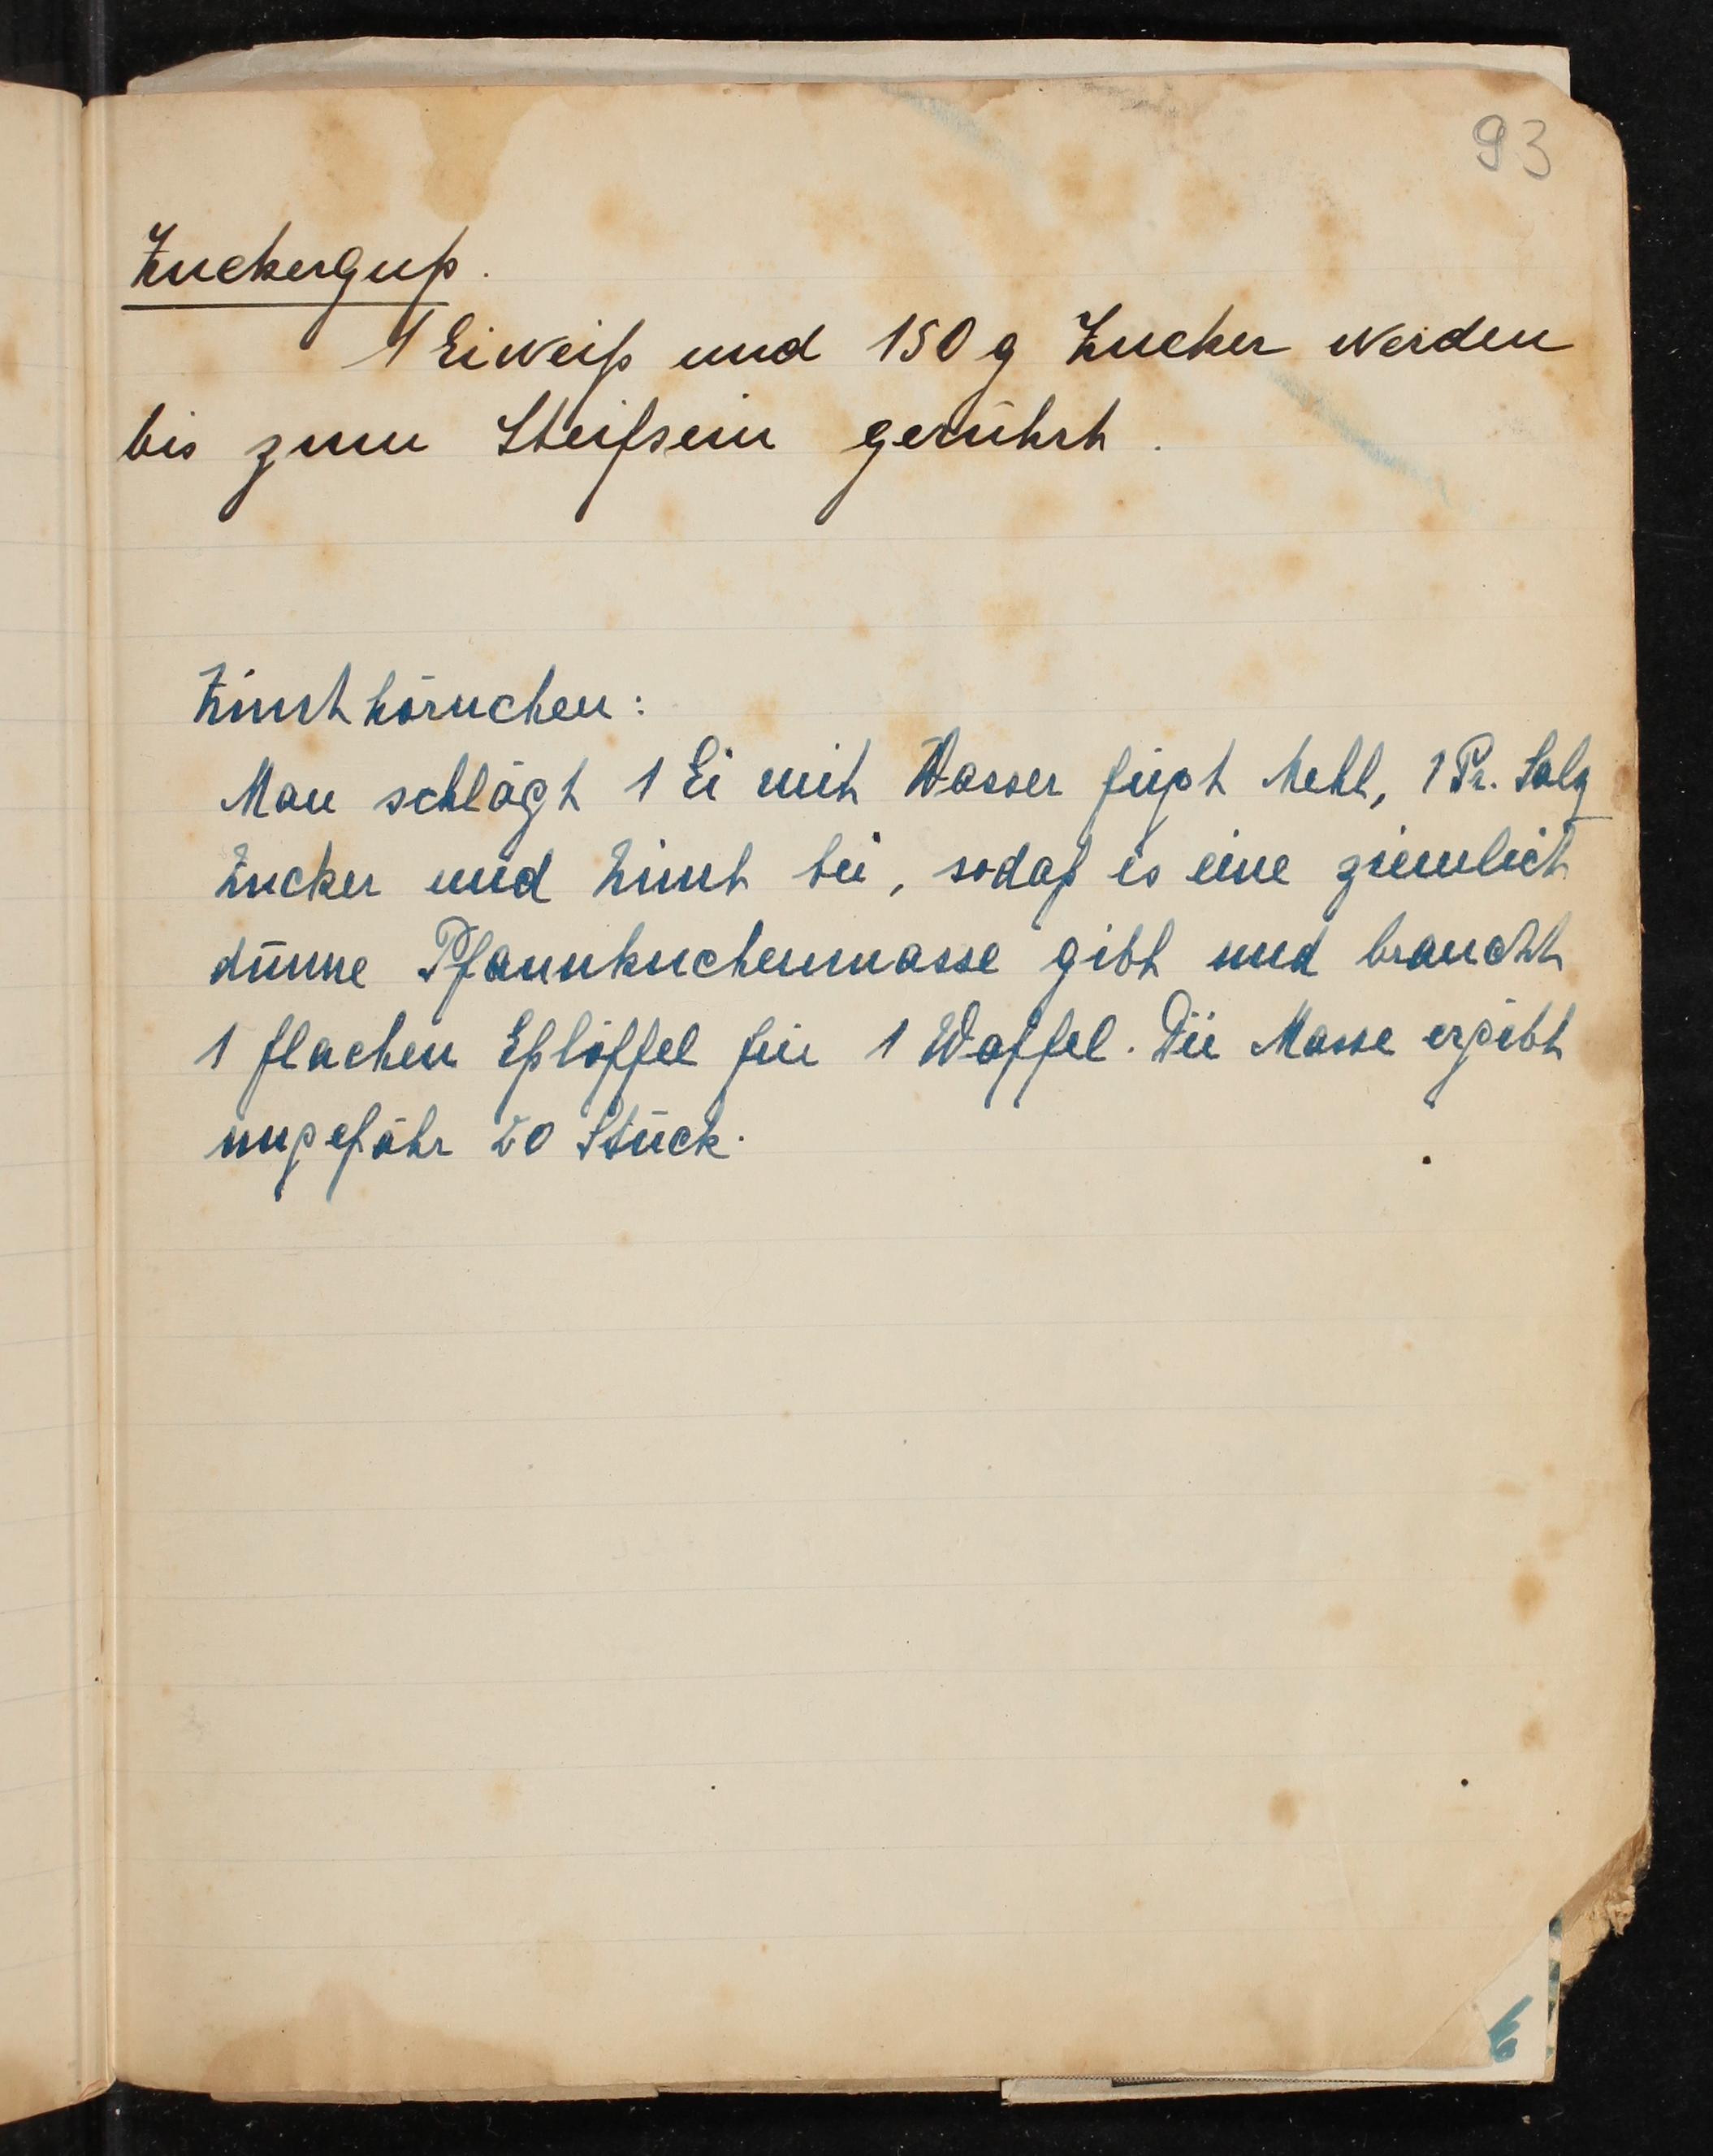 93
Zuckerguß.
1 Eiweiß und 150 g Zucker werden
bis zum Steifsein gerührt.
Zimthörnchen:
Man schlägt 1 Ei mit Wasser fügt Mehl, 1 Pr. Salz
Zucker und Zimt bei, sodaß es eine ziemlich
dünne Pfannkuchenmasse gibt und braucht
1 flachen Eßlöffel für 1 Waffel. Die Masse ergibt
ungefähr 20 Stück.